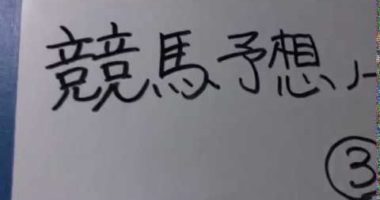 競馬予想ノー
③